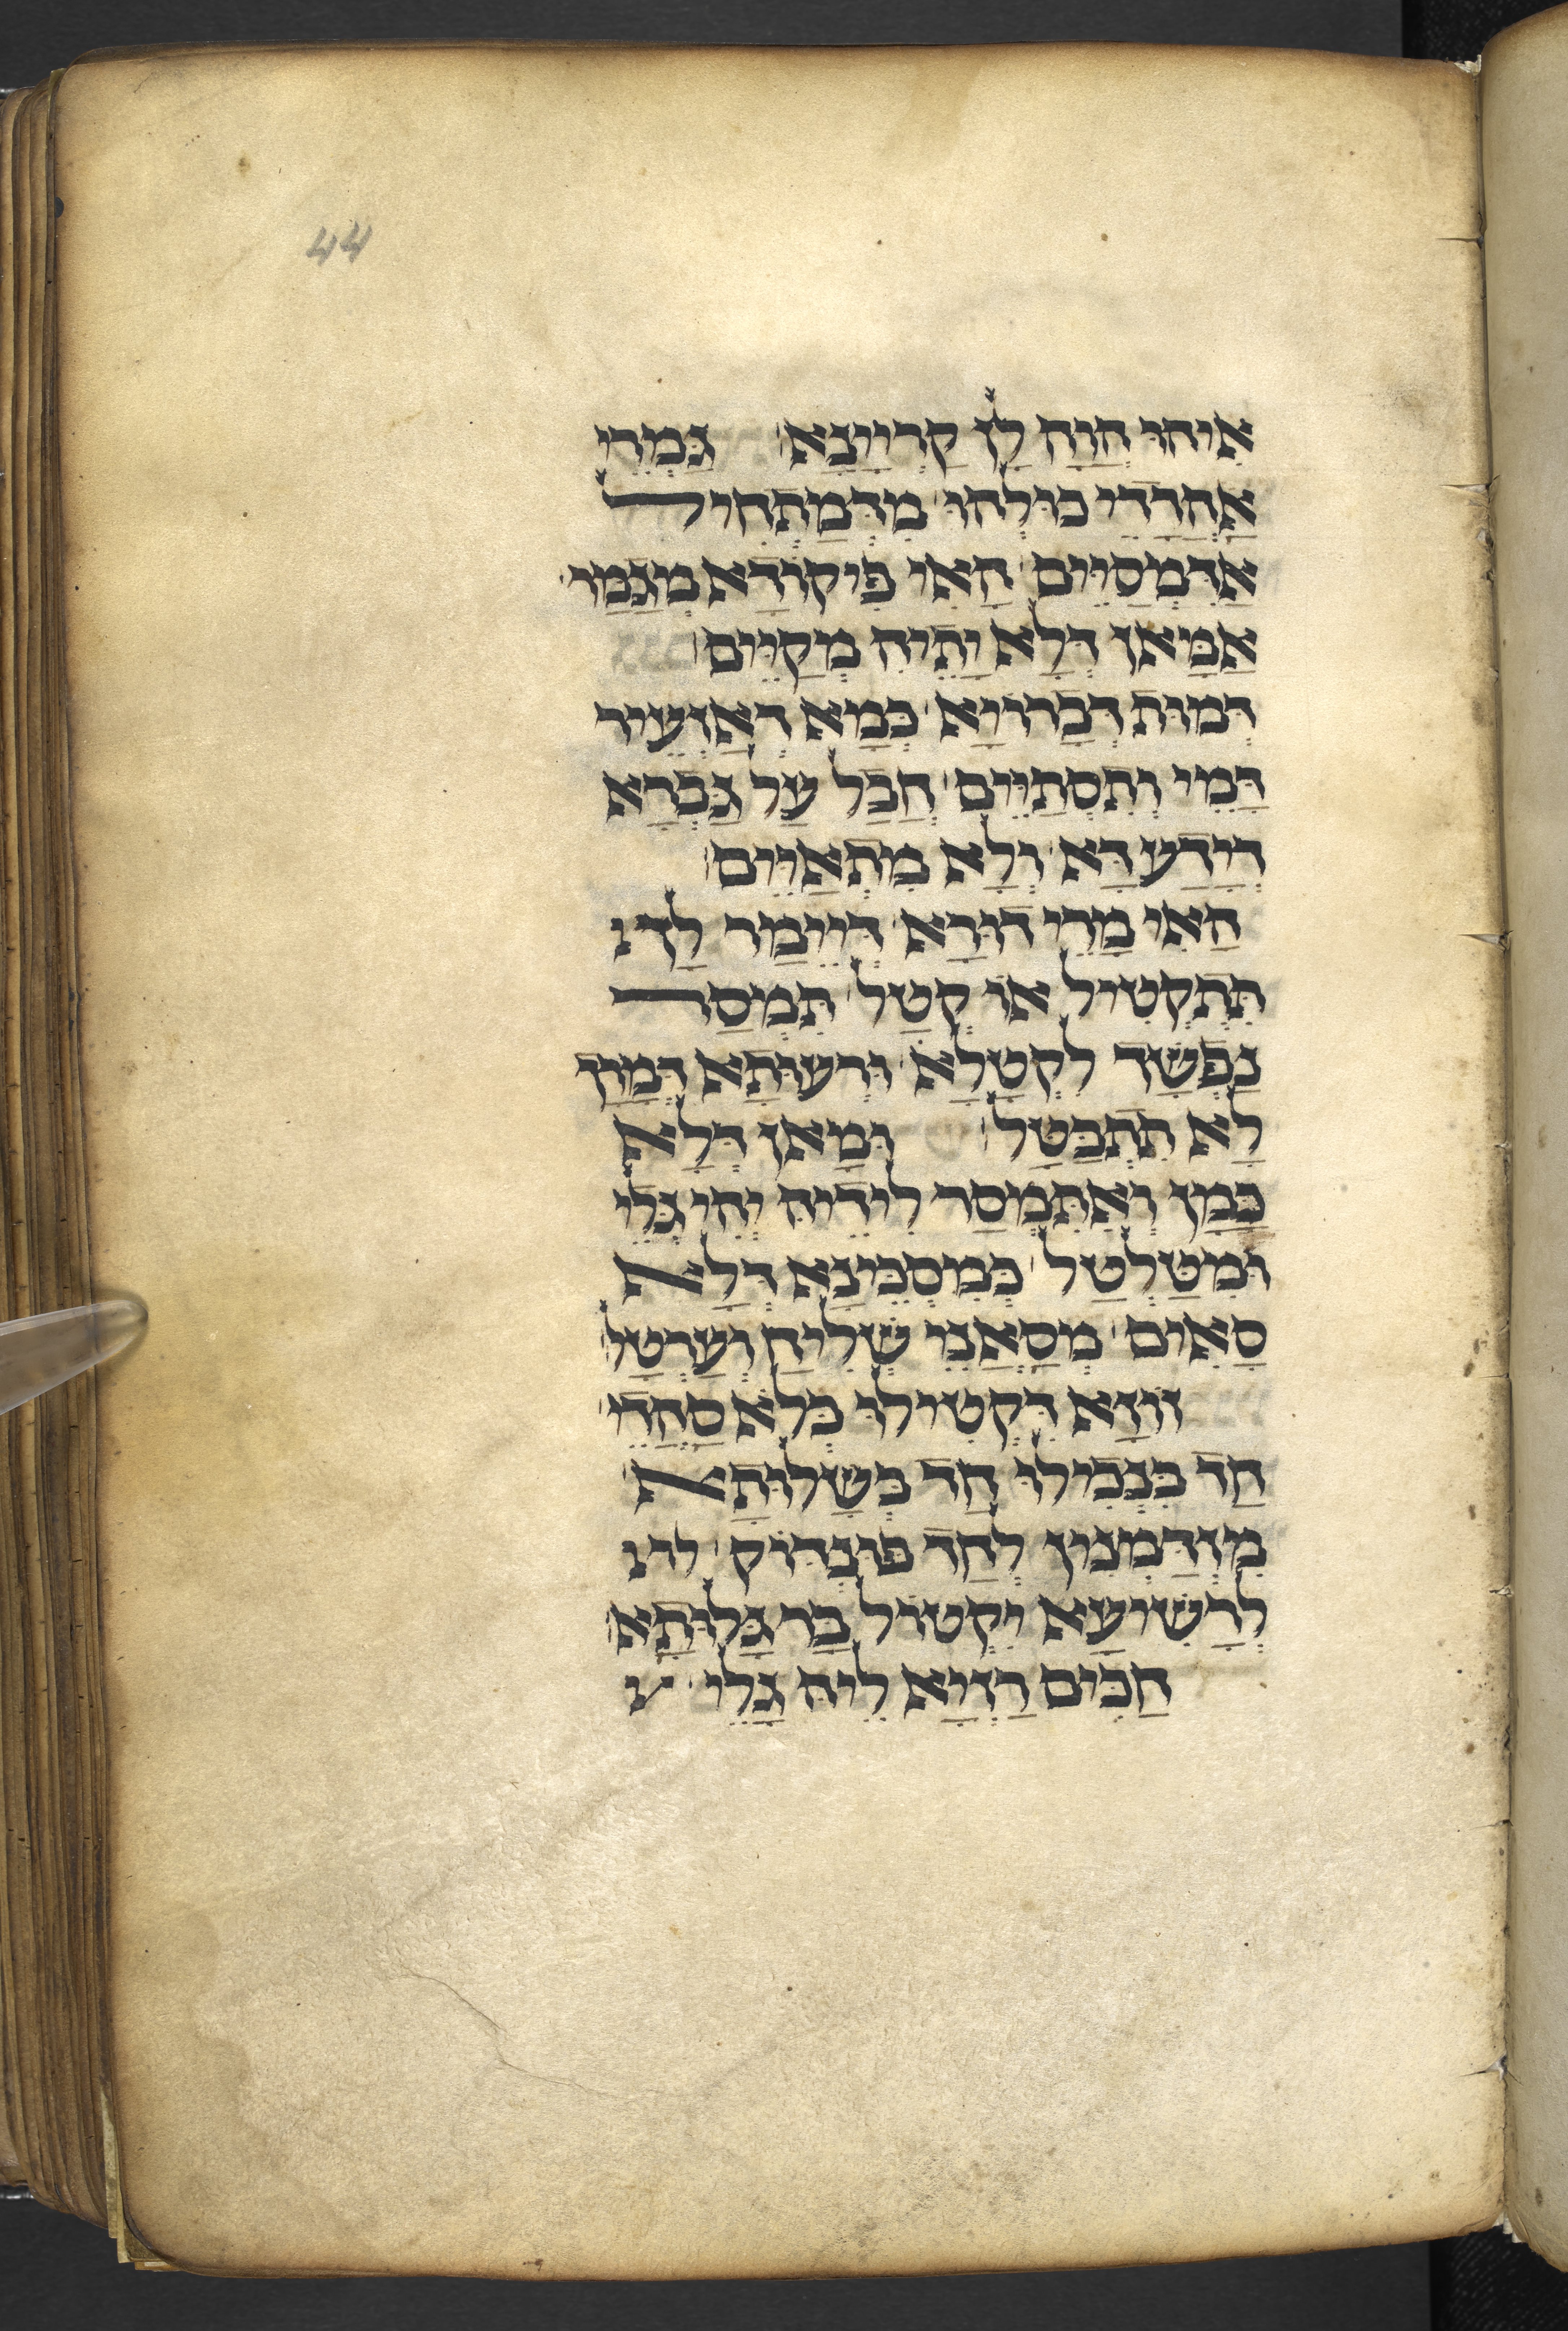 44
אִיהוּ הֲוָה לָן קַרְיָינָא גַּמְרֵי
אַהֲדָדֵי כּוּלְּהוּ מִדְּמַתְחִיל
אַדִּמְסַיֵּים הַאי פִּיקּוּדָא מְגַמַּר
אַמַּאן דְּלָא יָתֵיהּ מְקַיֵּים
דְּמוּת דְּבָרוֹיָא כְּמָא דְאַזְעֵיר
דָּמֵי וְתִסְתַּיֵּים חֲבָל עַל גַּבְרָא
דְּיָדַע דָּא וְלָא מִתְאַיֵּים
הַאי מָרֵי דוּרָא דְּיֵימַר לָךְ
תִּתְקְטִיל אוֹ קְטַל תִּמְסַר
נַפְשָׁךְ לִקְטָלָא וּרְעוּתָא דְמָרָךְ
לָא תִתְבַּטַּל וּמָאן דְּלָא
כַּמַּן וְאִתְּמְסַר לִידֵיהּ יְהֵי גְּלֵי
וּמִטַּלְטַל כְּמִסְכֵּינָא דְּלָא
סָאִים מְסָאֲנֵי שְׁלִיחַ וְעַרְטַל
זוֹוָא דִּקְטִילוּ בְּלָא סַהֲדֵי
חַד בִּנְכִילוּ חַד בְּשָׁלוּתָא
מִזְדַּמְּנִין לְחַד פּוּנְדּוֹק
לְרַשִּׁיעָא יִקְטוֹל בַּר גָּלוּתָא
חַכִּים רַזְיָא לֵיהּ גָּלֵי